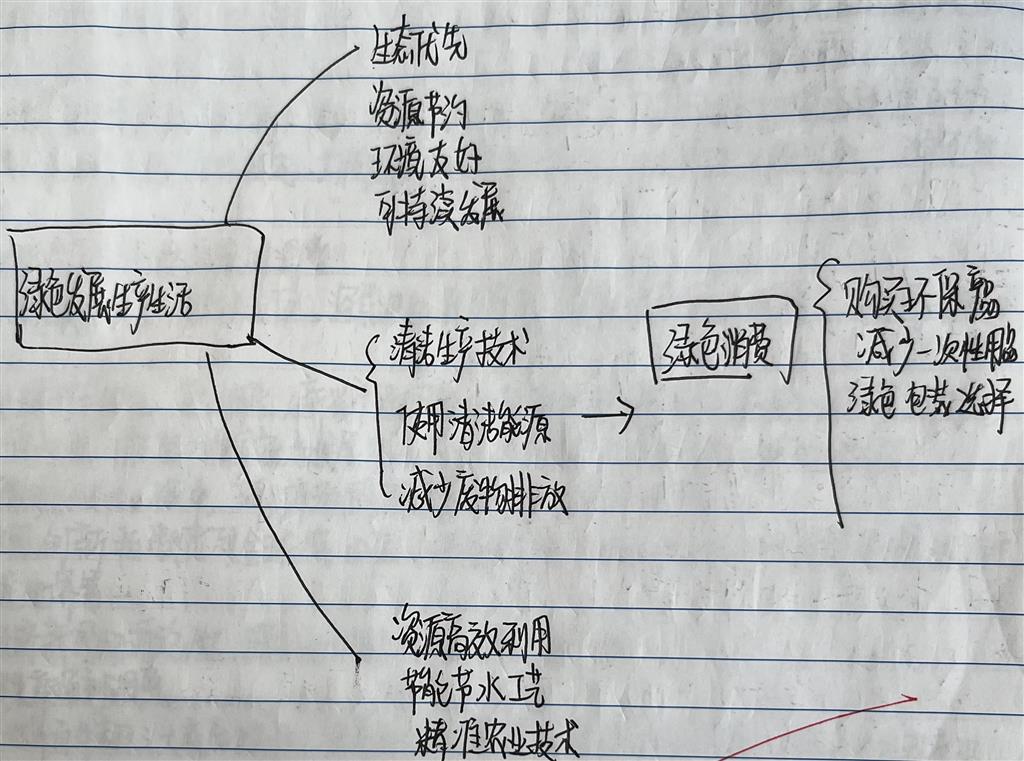 生态优先
资源节约
环境友好
可持续发展
绿色发展生产生活
清洁生产技术
使用清洁能源
减少废物排放
绿色消费
购买环保产品
减少一次性用品
绿色包装选择
资源高效利用
节能节水工艺
精准农业技术